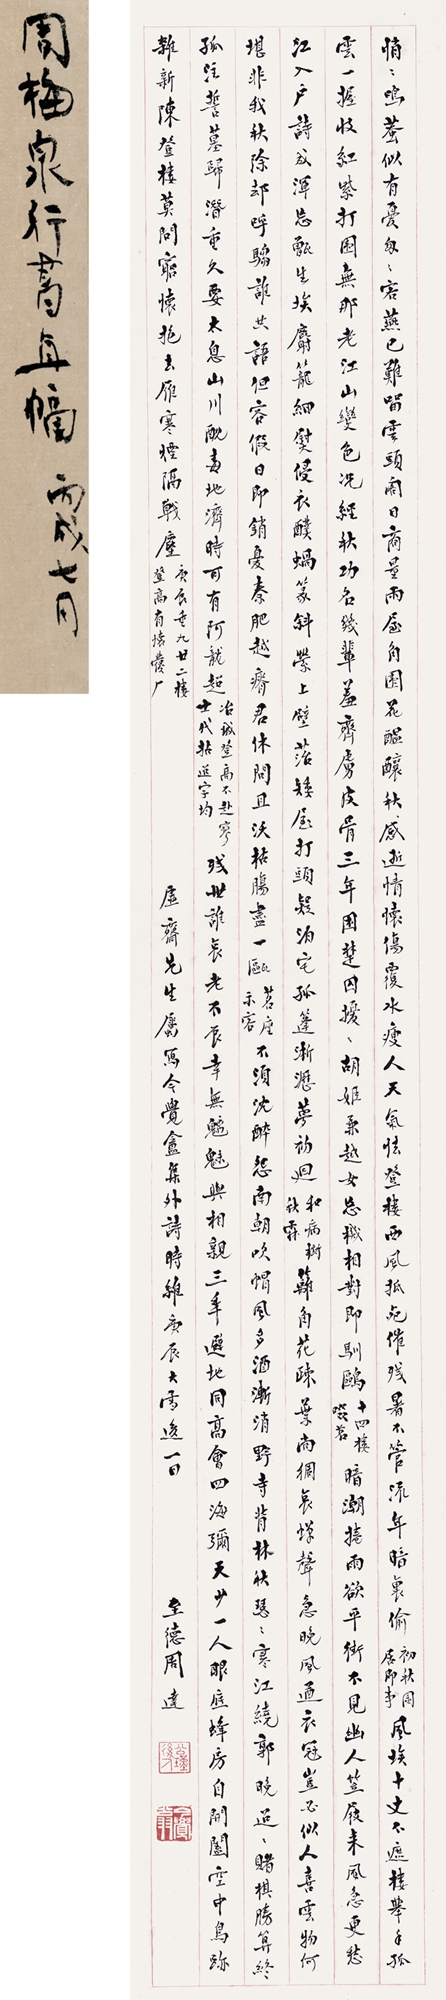 周梅泉行書直幅 丙戌七月
悄悄鳴蛩似有憂匆匆客燕已難留雲頭閣日商量雨屋角園花醞釀秋感逝情懷傷覆水瘦人天氣怯登樓西風孤館催殘暑不管流年暗裏偷 初秋閒居即事 風埃十丈不遮樓舉手孤
雲一握收紅紫打圍無那老江山變色況經秋功名幾輩羞齊虜皮骨三年困楚囚擾擾胡姬柔越女忘機相對即馴鷗 十四樓啜茗 暗潮捲雨欲平街不見幽人笠屐來風急更愁
江入戶詩成渾忘甑生埃麝籠細熨侵衣醭蝸篆斜縈上壁苔矮屋打頭疑泊宅孤蓬淅瀝夢初迴 和病樹秋霖 籬角花疏葉尚稠哀蟬聲急晚風遒衣冠豈必似人喜雲物何
堪非我秋除却呼鄰誰共語但容假日即銷憂秦肥越瘠君休問且沃枯腸盡一甌 茗座示客 不須沈醉怨南朝吹帽風多酒漸消野寺背林秋瑟瑟寒江繞郭晚迢迢賭棋勝算終
孤注誓墓歸潛重久要太息山川酖毒地濟時可有阿龍超 冶城登高不赴寥士代拈迢字均 殘世誰哀老不辰幸無魑魅與相親三年避地同高會四海彌天少一人眼底蜂房自開闔空中鳥跡
雜新陳登樓莫問窮懷抱去雁寒煙隔戰塵 庚辰重九廿二樓登高有懷&#8203;广
虛齋先生屬寫今覺盦集外詩時維庚辰大雪後一日
至德周達